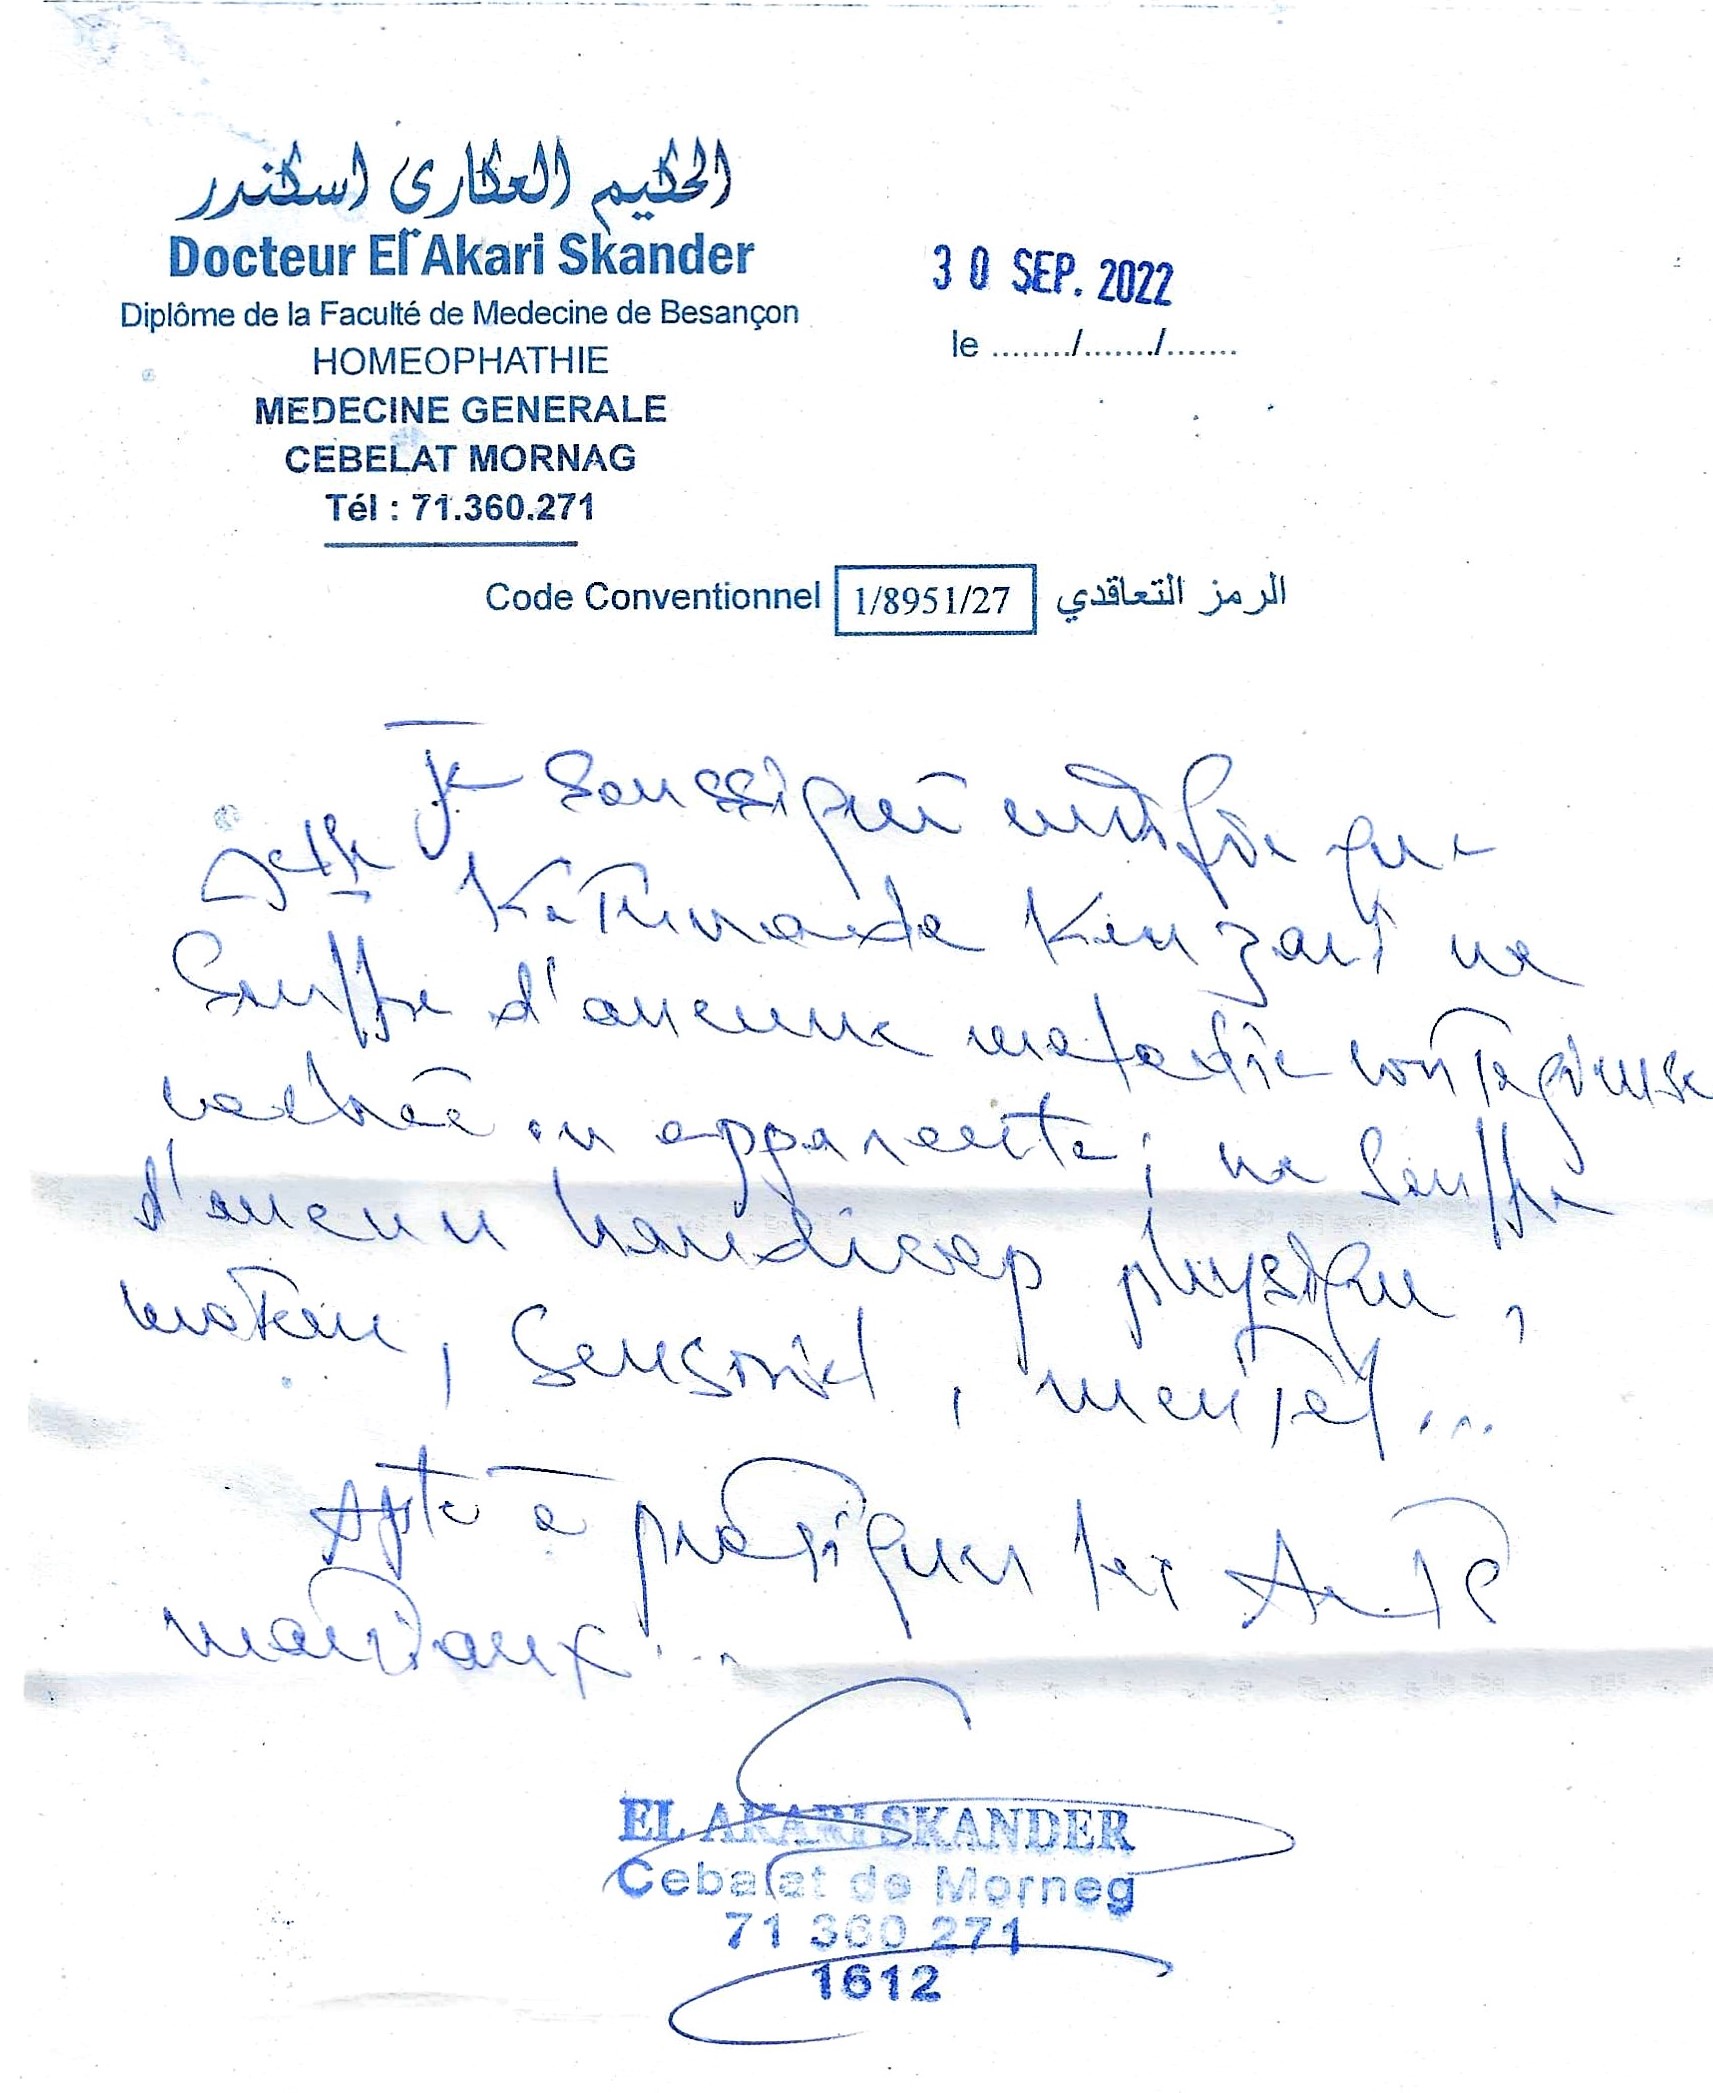 الحكيم العكاري اسكندر
Docteur El Akari Skander
Diplôme de la Faculté de Medecine de Besançon
HOMEOPHATHIE
MEDECINE GENERALE
CEBELAT MORNAG
Tél : 71.360.271
30 SEP. 2022
le ......../......./.......
Code Conventionnel 1/8951/27 الرمز التعاقدي
Je soussigné certifie que
Kenzari ne
souffre d'aucune maladie contagieuse
cachée ou apparente ; ne souffre
d'aucun handicap physique,
moteur, sensoriel, mental...
Apte à pratiquer les Arts
martiaux...
EL AKARI SKANDER
Cebalat de Morneg
71 360 271
1612